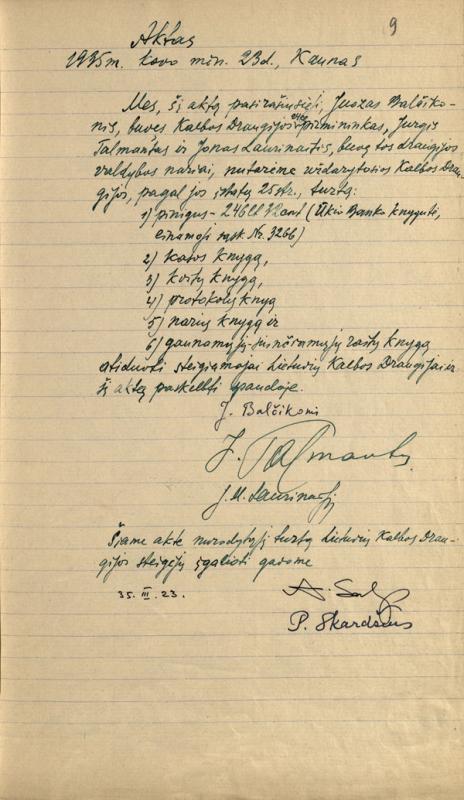 9
Aktas
1935 m. kovo mėn. 23 d., Kaunas
Mes, šį aktą pasirašusieji, Juozas Balčiko-
nis, buvęs Kalbos Draugijos pirmininkas, Jurgis
Talmantas ir Jonas Laurinaitis, buvę tos draugijos
valdybos nariai, nutarėme uždarytosios Kalbos Drau-
gijos, pagal jos įstatų 25 str., turtą:
1) pinigus - 246 lt 72 cent (Ūkio Banko knygutė,
einamoji sąsk. Nr. 3266)
2) kasos knygą,
3) kvitų knygą,
4) protokolų knygą
5) narių knygą ir
6) gaunamųjų-siunčiamųjų raštų knygą
atiduoti steigiamajai Lietuvių Kalbos Draugijai ir
šį aktą paskelbti spaudoje.
J. Balčikonis
J. Talmantas
J. M. Laurinaitis
Šiame akte nurodytąjį turtą Lietuvių Kalbos Drau-
gijos steigėjų įgalioti gavome
35. III. 23.
P. Skardžius